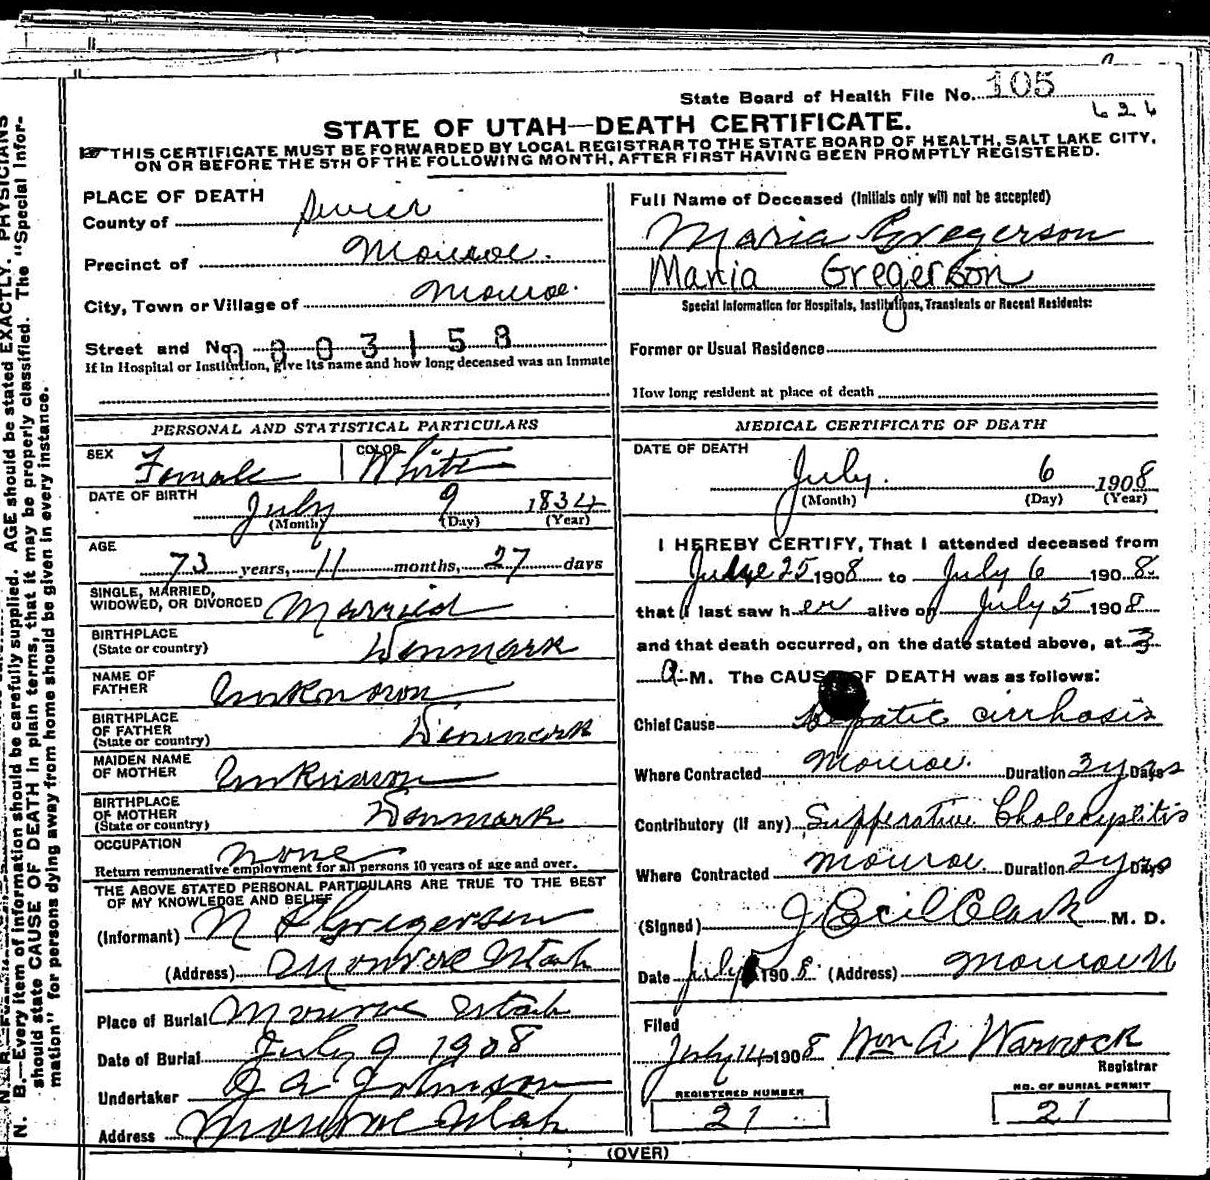 State Board of Health File No. 105
626
STATE OF UTAH—DEATH CERTIFICATE.
THIS CERTIFICATE MUST BE FORWARDED BY LOCAL REGISTRAR TO THE STATE BOARD OF HEALTH, SALT LAKE CITY,
ON OR BEFORE THE 5TH OF THE FOLLOWING MONTH, AFTER FIRST HAVING BEEN PROMPTLY REGISTERED.
PLACE OF DEATH
County of Sevier
Precinct of Monroe.
City, Town or Village of Monroe.
Street and No. 0803158
If in Hospital or Institution, give its name and how long deceased was an Inmate
Full Name of Deceased (Initials only will not be accepted)
Maria Gregerson
Maria Gregerson
Special Information for Hospitals, Institutions, Transients or Recent Residents:
Former or Usual Residence
How long resident at place of death
PERSONAL AND STATISTICAL PARTICULARS
SEX Female COLOR White
DATE OF BIRTH July 9 1834
(Month) (Day) (Year)
AGE 73 years, 11 months, 27 days
SINGLE, MARRIED,
WIDOWED, OR DIVORCED Married
BIRTHPLACE
(State or country) Denmark
NAME OF
FATHER Unknown
BIRTHPLACE
OF FATHER
(State or country) Denmark
MAIDEN NAME
OF MOTHER Unknown
BIRTHPLACE
OF MOTHER
(State or country) Denmark
OCCUPATION none
Return remunerative employment for all persons 10 years of age and over.
THE ABOVE STATED PERSONAL PARTICULARS ARE TRUE TO THE BEST
OF MY KNOWLEDGE AND BELIEF
(Informant) N Gregersen
(Address) Monroe Utah
Place of Burial Monroe Utah
Date of Burial July 9 1908
Undertaker Johnson
Address Monroe Utah
MEDICAL CERTIFICATE OF DEATH
DATE OF DEATH
July. 6 1908
(Month) (Day) (Year)
I HEREBY CERTIFY, That I attended deceased from
June 25 1908 to July 6 1908.
that I last saw her alive on July 5 1908
and that death occurred, on the date stated above, at 3
a M. The CAUSE OF DEATH was as follows:
Chief Cause Hepatic cirrhosis
Where Contracted Monroe. Duration yrs Days
Contributory (if any) Supperative Cholecystitis
Where Contracted Monroe. Duration 2 yrs Days
(Signed) J Cecil Clark M. D.
Date July 1908 (Address) Monroe U
Filed
July 14 1908 Wm A Warnock
Registrar
REGISTERED NUMBER
21
NO. OF BURIAL PERMIT
21
(OVER)
N. B.—Every item of information should be carefully supplied. AGE should be stated EXACTLY. PHYSICIANS
should state CAUSE OF DEATH in plain terms, that it may be properly classified. The "Special Infor-
mation" for persons dying away from home should be given in every instance.